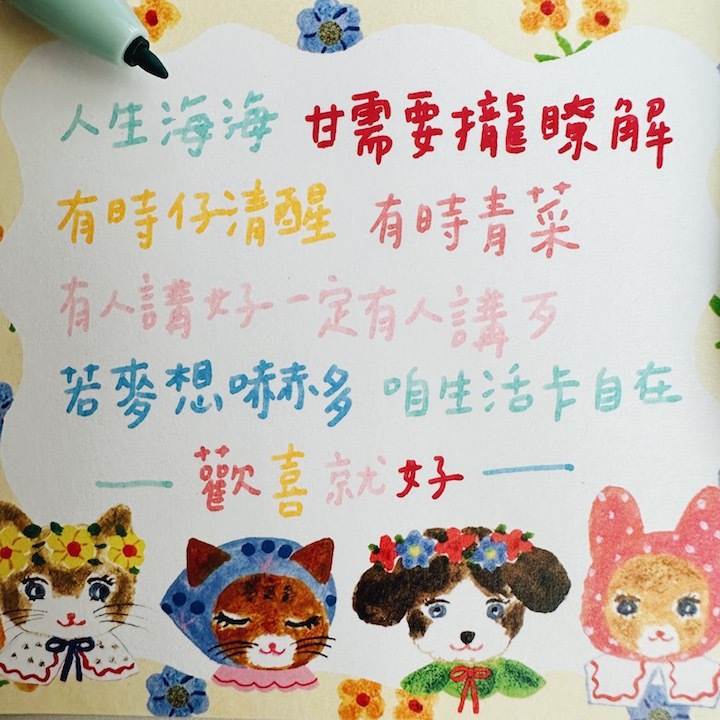 人生海海 甘需要攏瞭解
有時仔清醒 有時青菜
有人講好一定有人講歹
若麥想嚇多 咱生活卡自在
歡喜就好